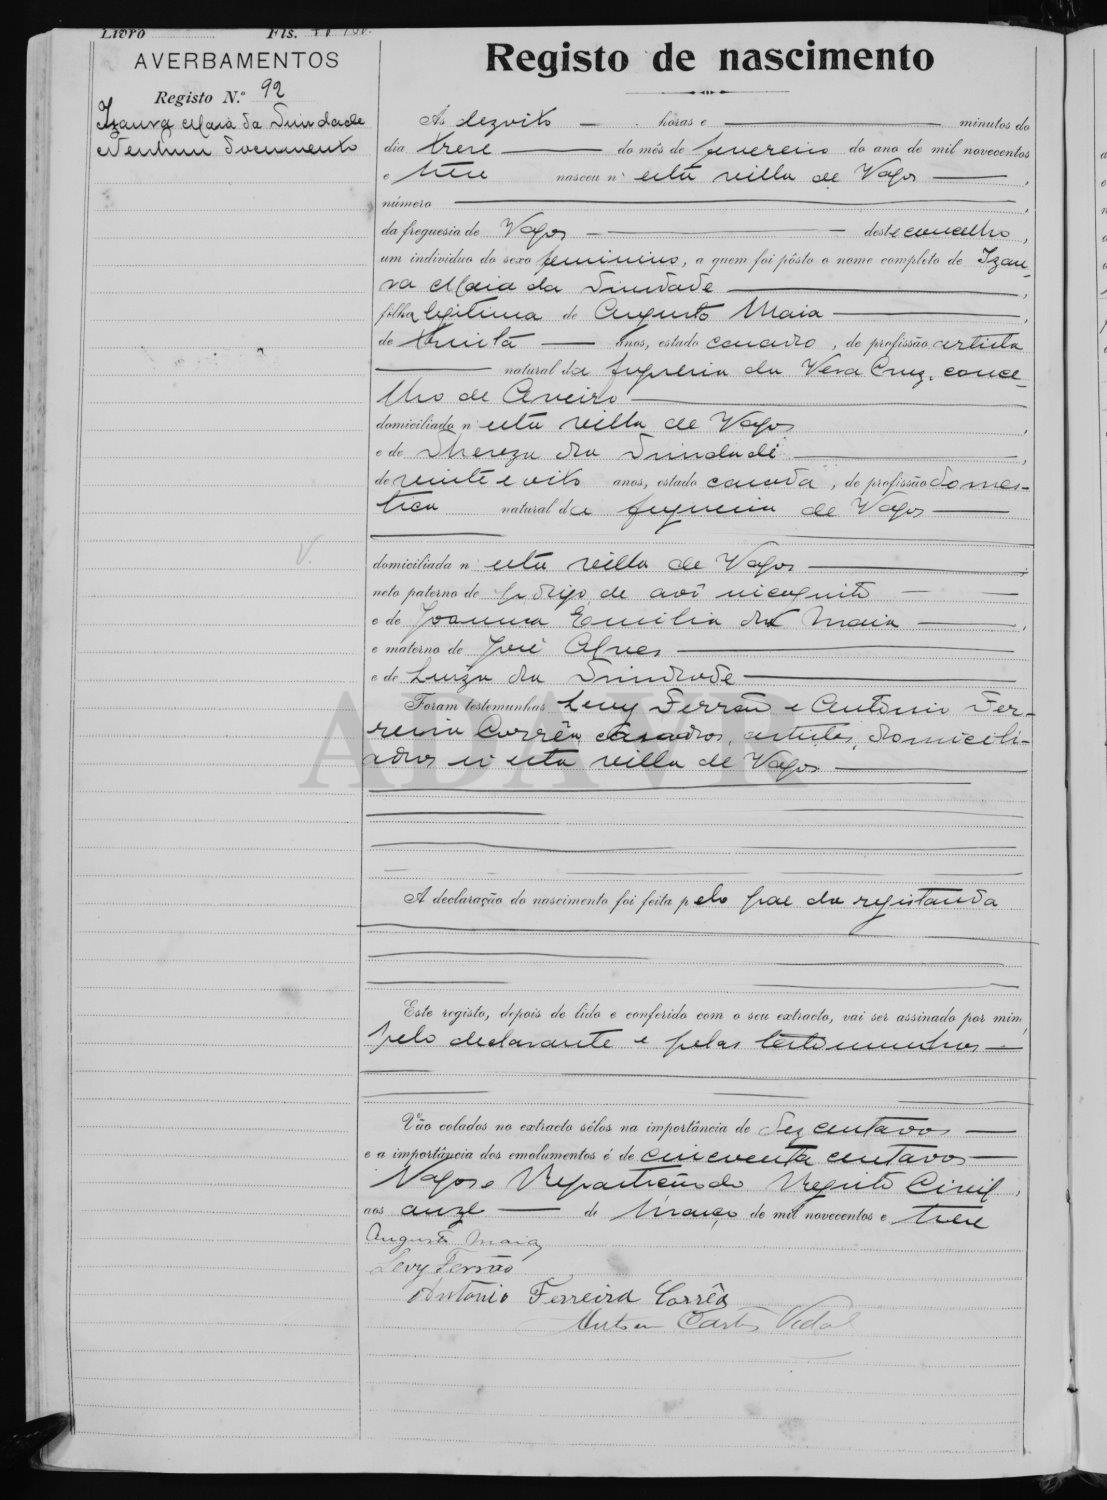 Livro Fls.
AVERBAMENTOS
Registo N.º 92
Izaura Maia da Trindade
Nenhum documento
Registo de nascimento
Às dezoito horas e minutos do
dia treze do mês de fevereiro do ano de mil novecentos
e treze nasceu n'esta villa de Vagos
número
da freguesia de Vagos deste concelho,
um indivíduo do sexo feminino, a quem foi pôsto o nome completo de Izau-
ra Maia da Trindade
filha legitima de Augusto Maia
de trinta anos, estado casado, de profissão artista
natural da freguesia da Vera Cruz, conce-
lho de Aveiro
domiciliado n'esta villa de Vagos
e de Thereza da Trindade
de vinte e oito anos, estado casada, de profissão domes-
tica natural da freguesia de Vagos
domiciliada n'esta villa de Vagos
neto paterno de de avô incognito
e de Joanna Emilia da Maia
e materno de José Alves
e de Luiza da Trindade
Foram testemunhas Levy Ferrão e Antonio Fer-
reira Corrêa, casados, artistas, domicili-
ados n'esta villa de Vagos
ADAVR
A declaração do nascimento foi feita pelo pae da registanda
Este registo, depois de lido e conferido com o seu extracto, vai ser assinado por mim,
pelo declarante e pelas testemunhas
Vão colados no extracto sêlos na importância de dez centavos
e a importância dos emolumentos é de cincoenta centavos
Vagos e Repartição do Registo Civil,
aos onze de Março de mil novecentos e treze
Augusto Maia
Levy Ferrão
Antonio Ferreira Corrêa
Vidal